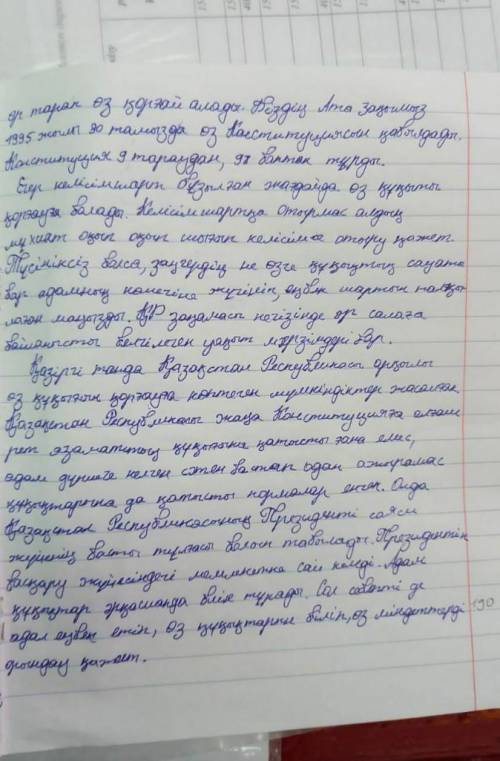 әр тарап өз қорғай алады. Біздің Ата заңымыз
1995 жылы 30 тамызда өз Конституциясын қабылдады.
Конституция 9 тараудан, 98 баптан тұрды.
Егер келісімшарт бұзылған жағдайда өз құқығын
қорғауға болады. Келісімшартқа отырмас алдың
мұхият оқып оқып шығып келісімге отыру қажет.
Түсініксіз болса, заңгердің не өзге құқықтың сауаты
бар адамның көмегіне жүгініп, еңбек шартын талқы
лаған маңызды. ҚР заңнамасы негізінде әр салаға
байланысты белгіленген уақыт мерзімдері бар.
Қазіргі таңда Қазақстан Республикасы арқылы
өз құқығын қорғауға көптеген мүмкіндіктер жасалған.
Қазақстан Республикасы жаңа Конституцияға алғаш
рет азаматтың құқығына қатысты ғана емес,
адам дүниеге келген сәттен бастап одан ажырамас
құқықтарына да қатысты нормалар енген. Онда
Қазақстан Республикасының Президенті саяси
жүйенің басты тұлғасы болып табылады. Президенттік
басқару жүйесіндегі мемлекетке сай келеді. Адам
құқықтар әрқашанда биік тұрады. Сол себепті де
адал еңбек етіп, өз құқықтарын біліп, өз міндеттерді
орындау қажет.
190